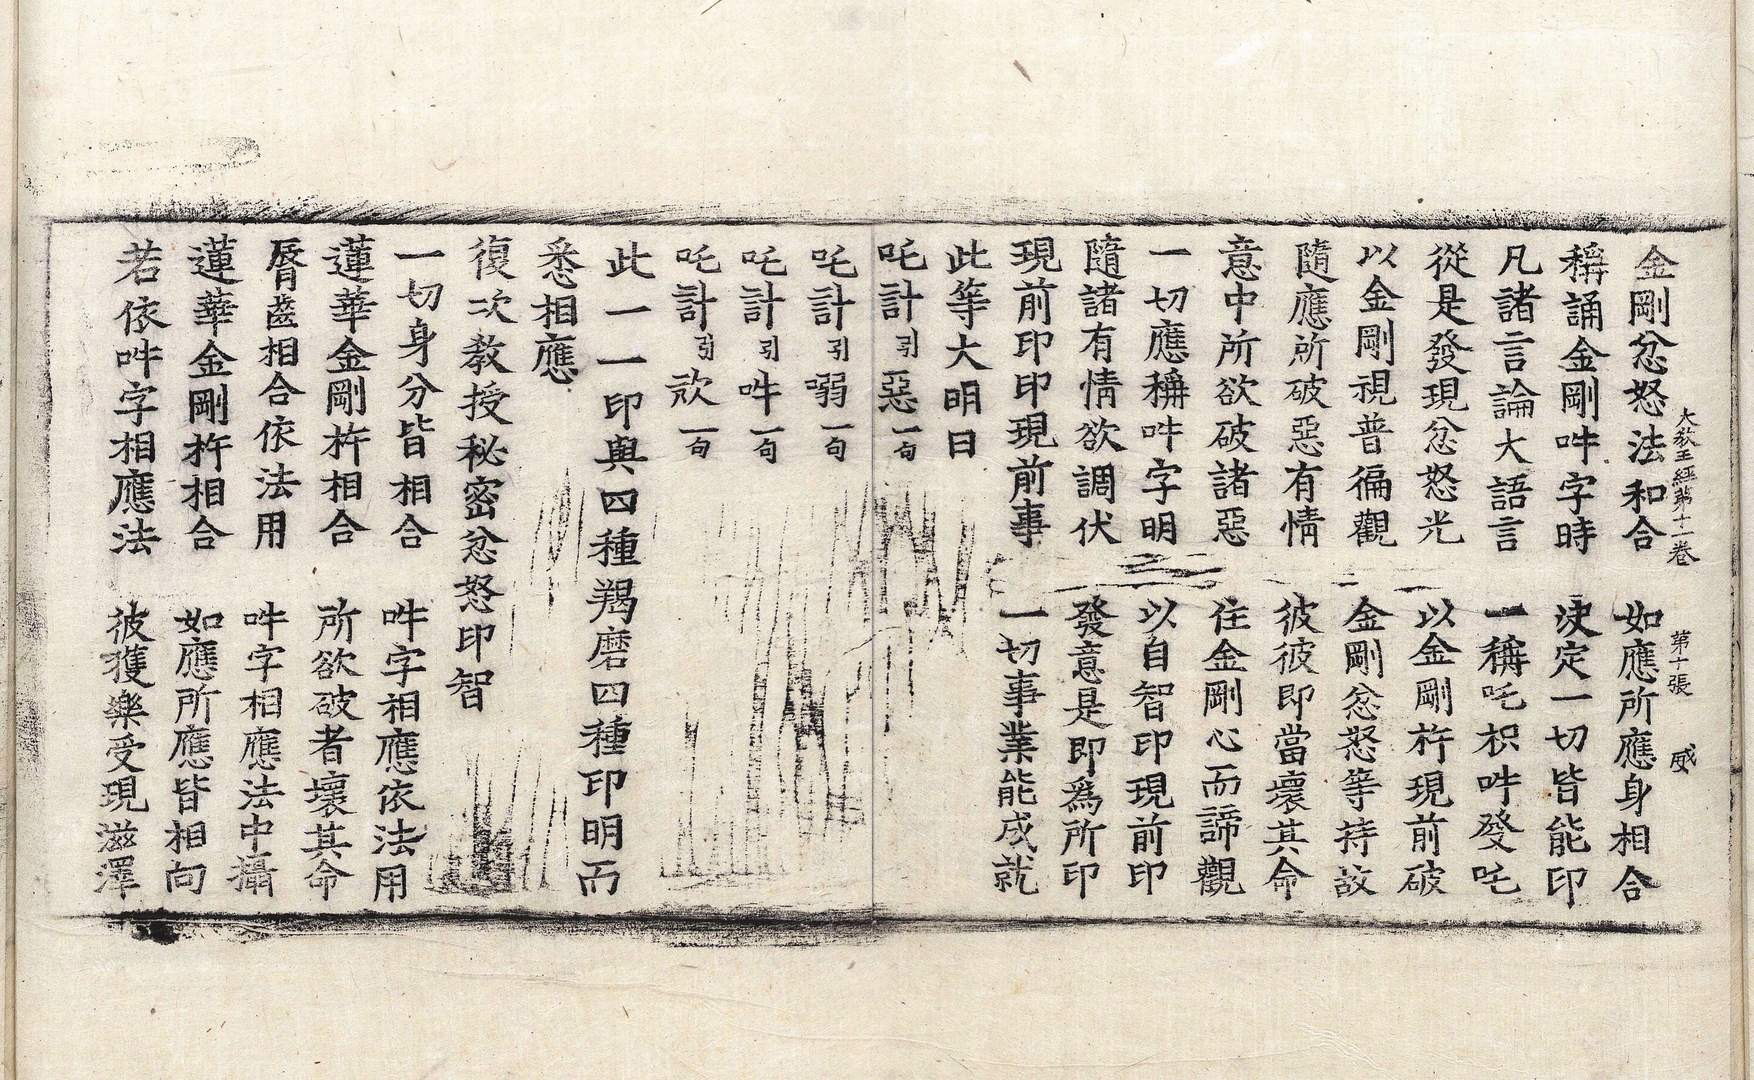 大教王經第十一卷　第十張　威
金剛忿怒法和合　如應所應身相合
稱誦金剛吽字時　決定一切皆能印
凡諸言論大語言　一稱吒枳吽發吒
從是發現忿怒光　以金剛杵現前破
以金剛視普徧觀　金剛忿怒等持故
隨應所破惡有情　彼彼即當壞其命
意中所欲破諸惡　住金剛心而諦觀
一切應稱吽字明　以自智印現前印
隨諸有情欲調伏　發意是即爲所印
現前印印現前事　一切事業能成就
此等大明曰
吒計引惡一句
吒計引嗠一句
吒計引吽一句
吒計引㰤一句
此一一印與四種羯磨四種印明而
悉相應
復次教授秘密忿怒印智
一切身分皆相合　吽字相應依法用
蓮華金剛杵相合　所欲破者壞其命
脣齒相合依法用　吽字相應法中攝
蓮華金剛杵相合　如應所應皆相向
若依吽字相應法　彼獲樂受現滋澤